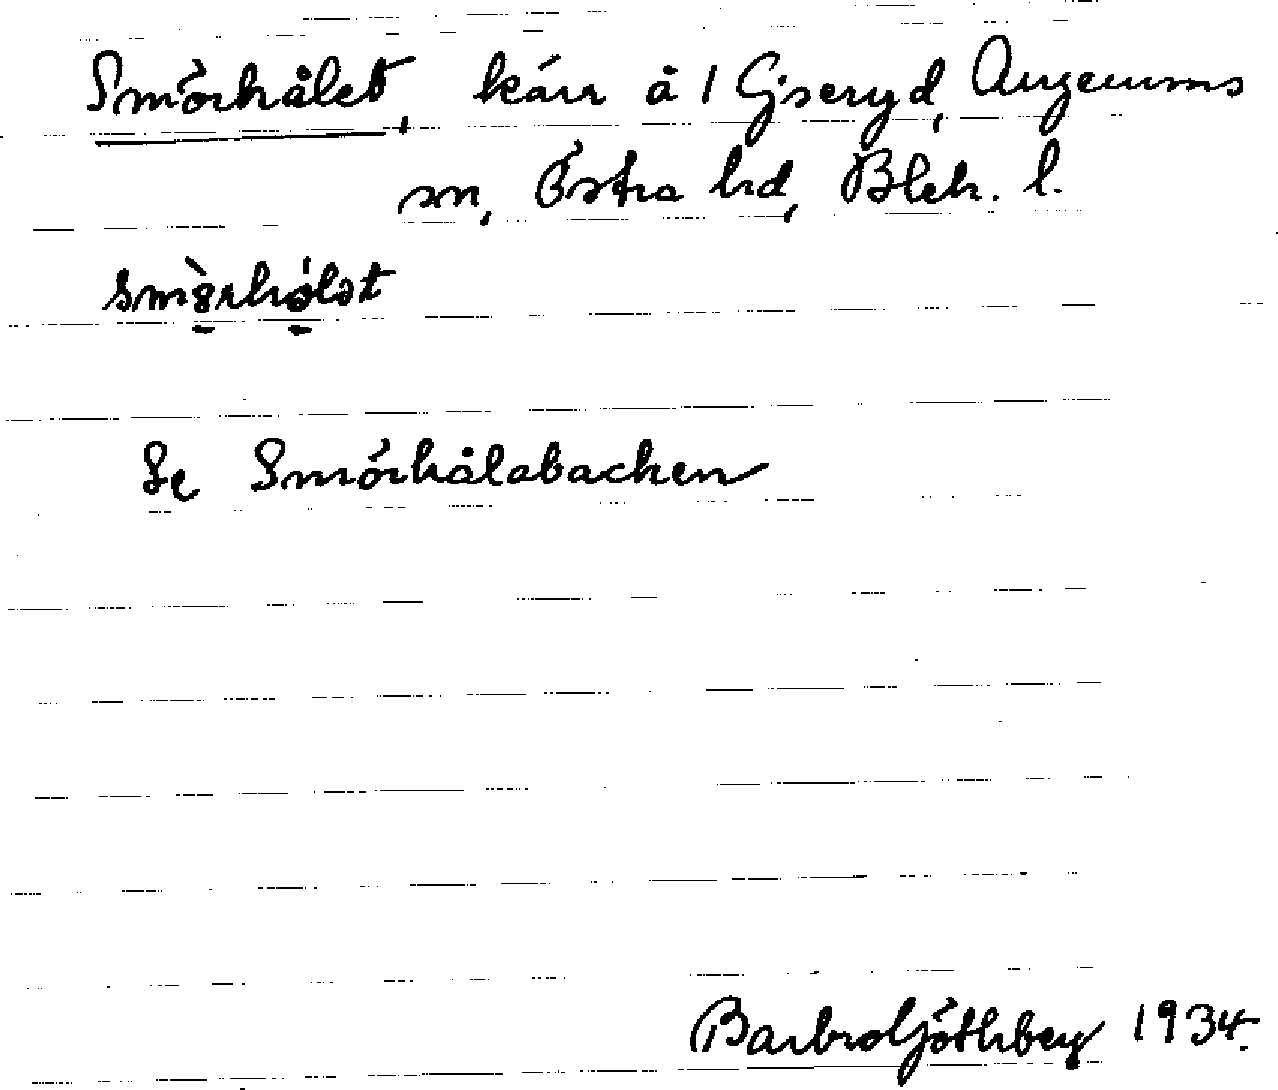 Smörhålet, kärr å 1 Gjseryd, Augerums
sn, Östra hd, Blek. l.
Se Smörhålabacken
Barbro Götlberg 1934.